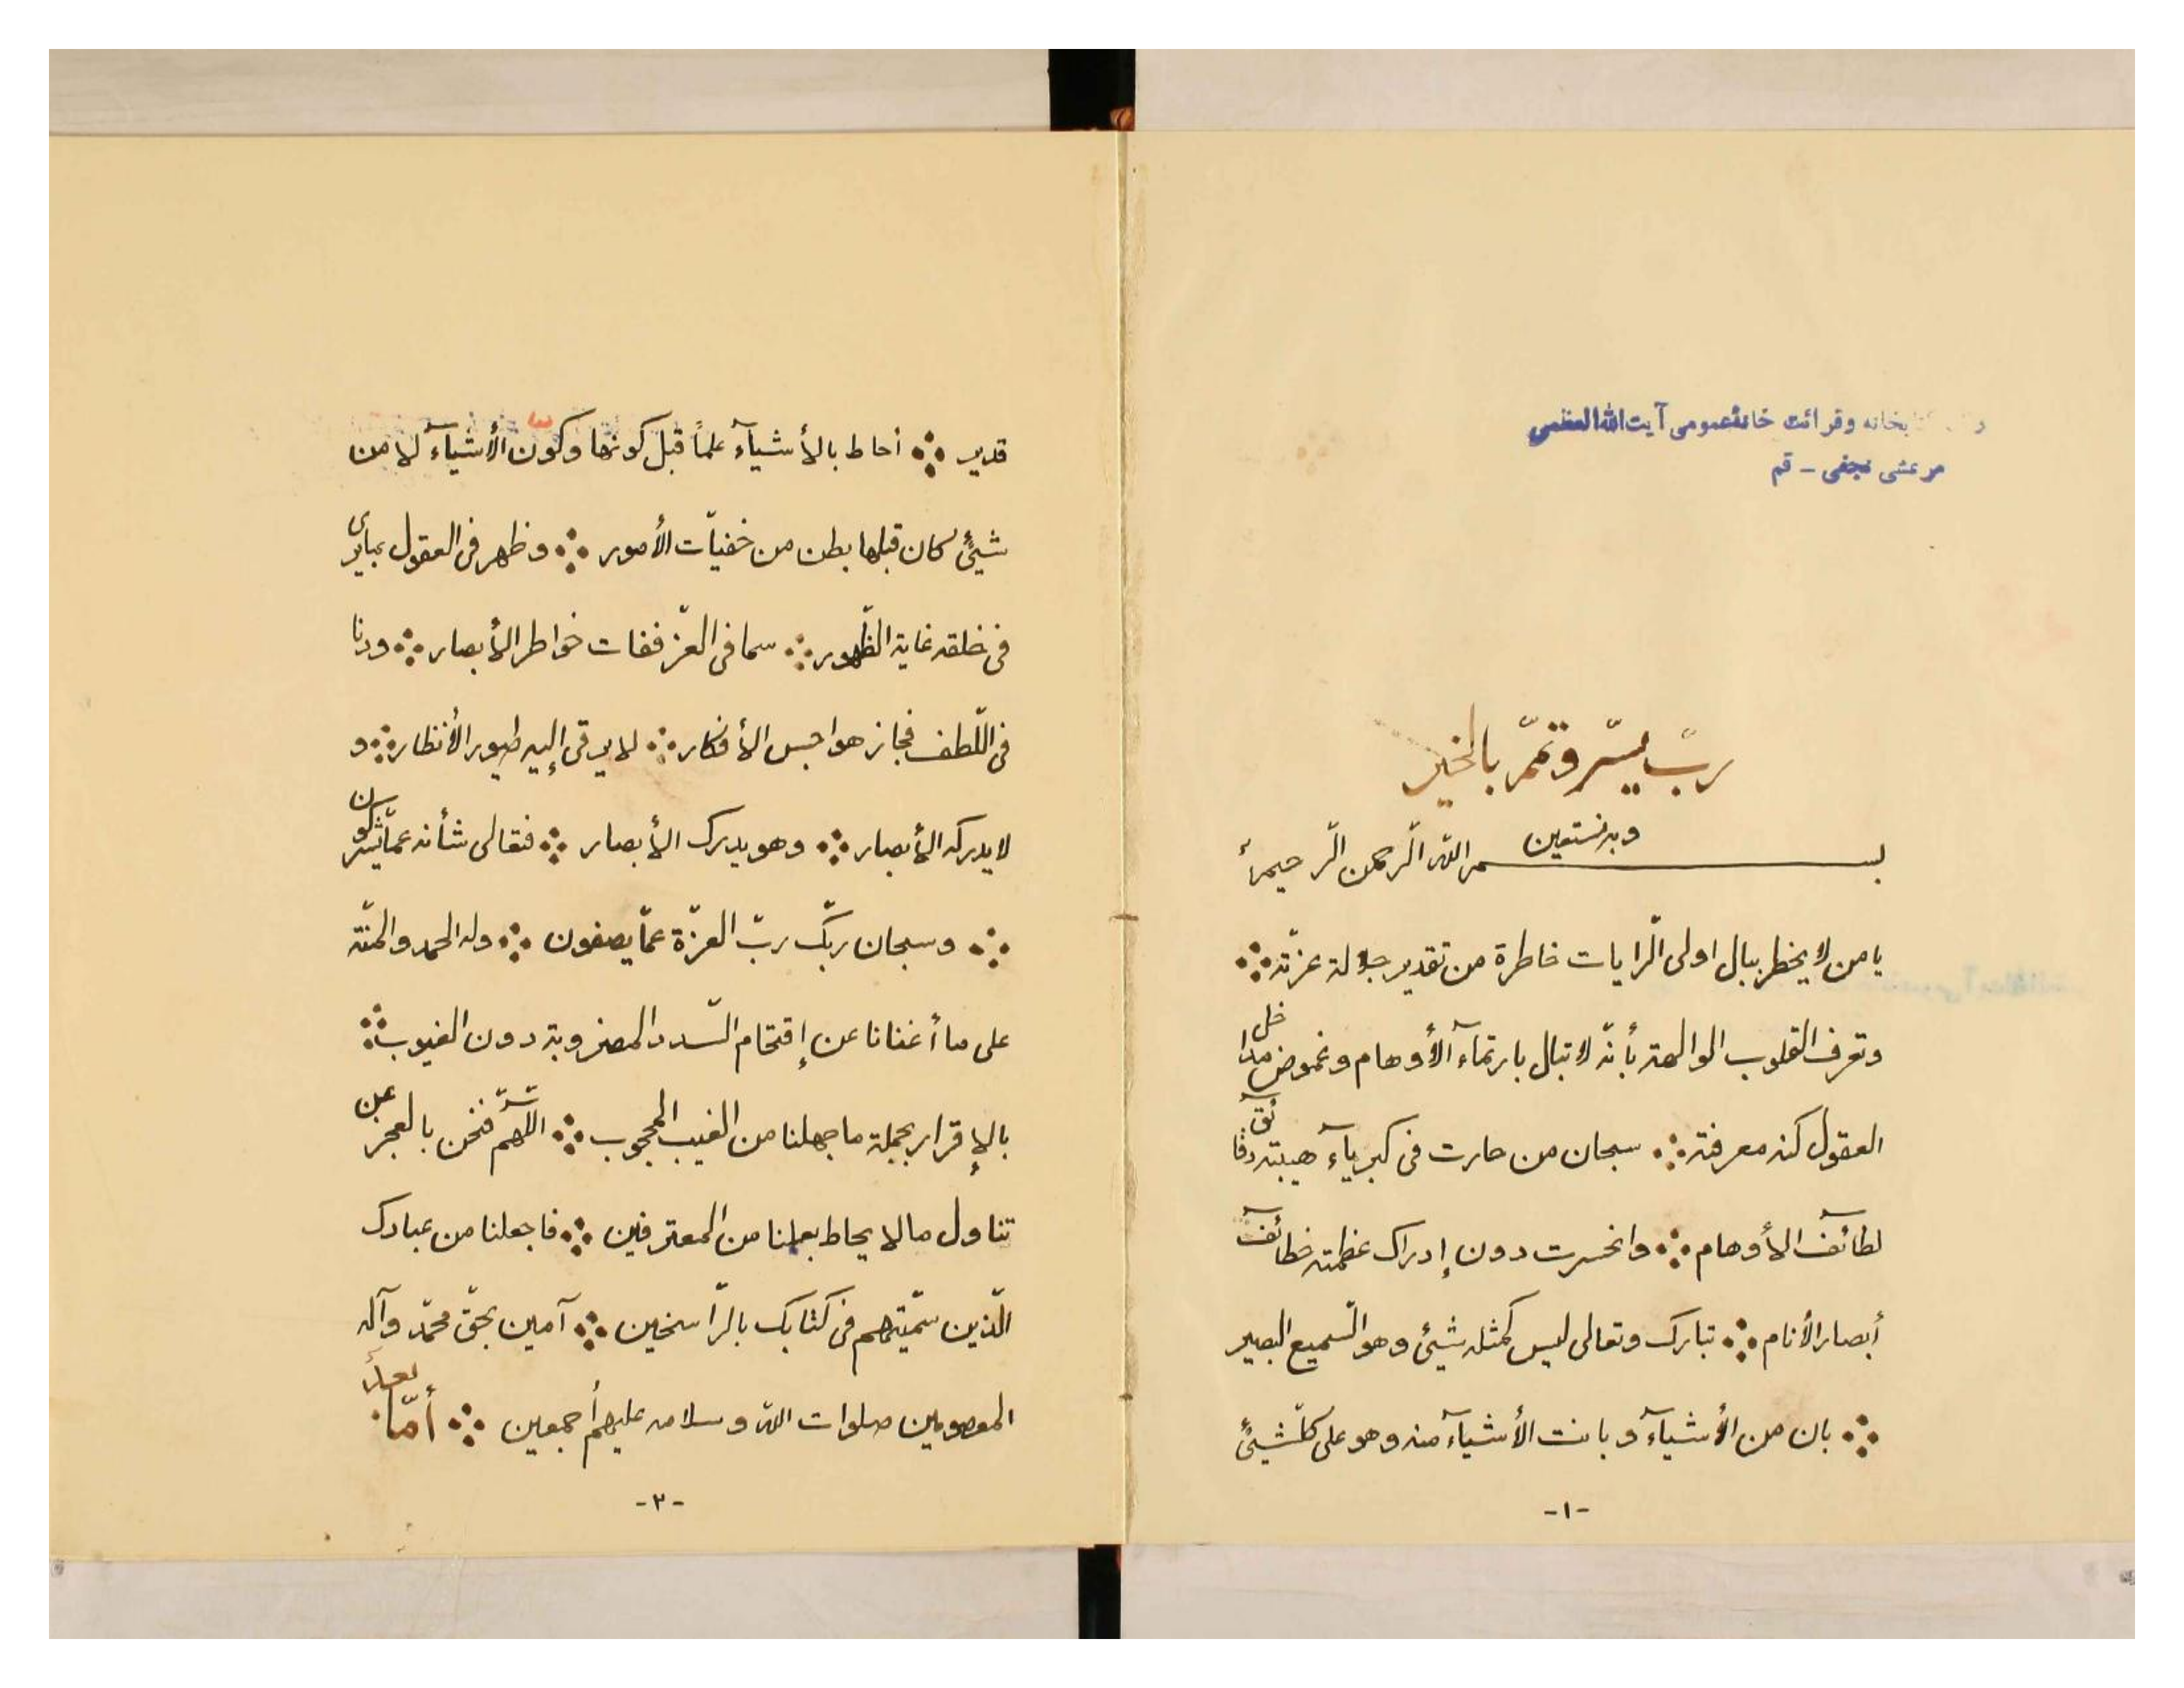 كتابخانه وقرائت خانهٔ عمومی آیت‌الله العظمی
مرعشی نجفی - قم
ربّ يسّر وتمّم بالخير
وبه نستعين
بسم اللّه الرّحمن الرّحيم
يا من لا يخطر ببال اولى الرّايات خاطرة من تقدير جلالة عزّته ∴
وتعرف القلوب الوالهة بأنّه لا تبال بارتمآء الأوهام وغموض مداخل
العقول كنه معرفته ∴ سبحان من حارت فى كبريآء هيبته دقائق
لطآئف الأوهام ∴ وانحسرت دون إدراك عظمته خطآئف
أبصار الأنام ∴ تبارك وتعالى ليس كمثله شيئ وهو السّميع البصير
∴ بان من الأشيآء وبانت الأشيآء منه وهو على كلّ شيئ
-١-
قدير ∴ أحاط بالأشيآء علماً قبل كونها وكون الأشيآء لا من
شيئ كان قبلها بطن من خفيّات الأمور ∴ وظهر فى العقول بمايرى
فى خلقه غاية الظّهور ∴ سما فى العزّ ففات خواطر الأبصار ∴ ودنا
فى اللّطف فجاز هواجس الأفكار ∴ لا يرقى إليه طيور الأنظار ∴ و
لا يدركه الأبصار ∴ وهو يدرك الأبصار ∴ فتعالى شأنه عمّا يشركون
∴ وسبحان ربّك ربّ العزّة عمّا يصفون ∴ وله الحمد والمنّة
على ما أغنانا عن إقتحام السّدد المضروبة دون الغيوب ∴
بالإقرار بجملة ما جهلنا من الغيب المحجوب ∴ اللّهمّ فنحن بالعجز عن
تناول ما لا يحاط بعلمنا من المعترفين ∴ فاجعلنا من عبادك
الّذين سمّيتهم فى كتابك بالرّاسخين ∴ آمين بحقّ محمّد وآله
المعصومين صلوات اللّه وسلامه عليهم أجمعين ∴ أمّا بعد
-٢-